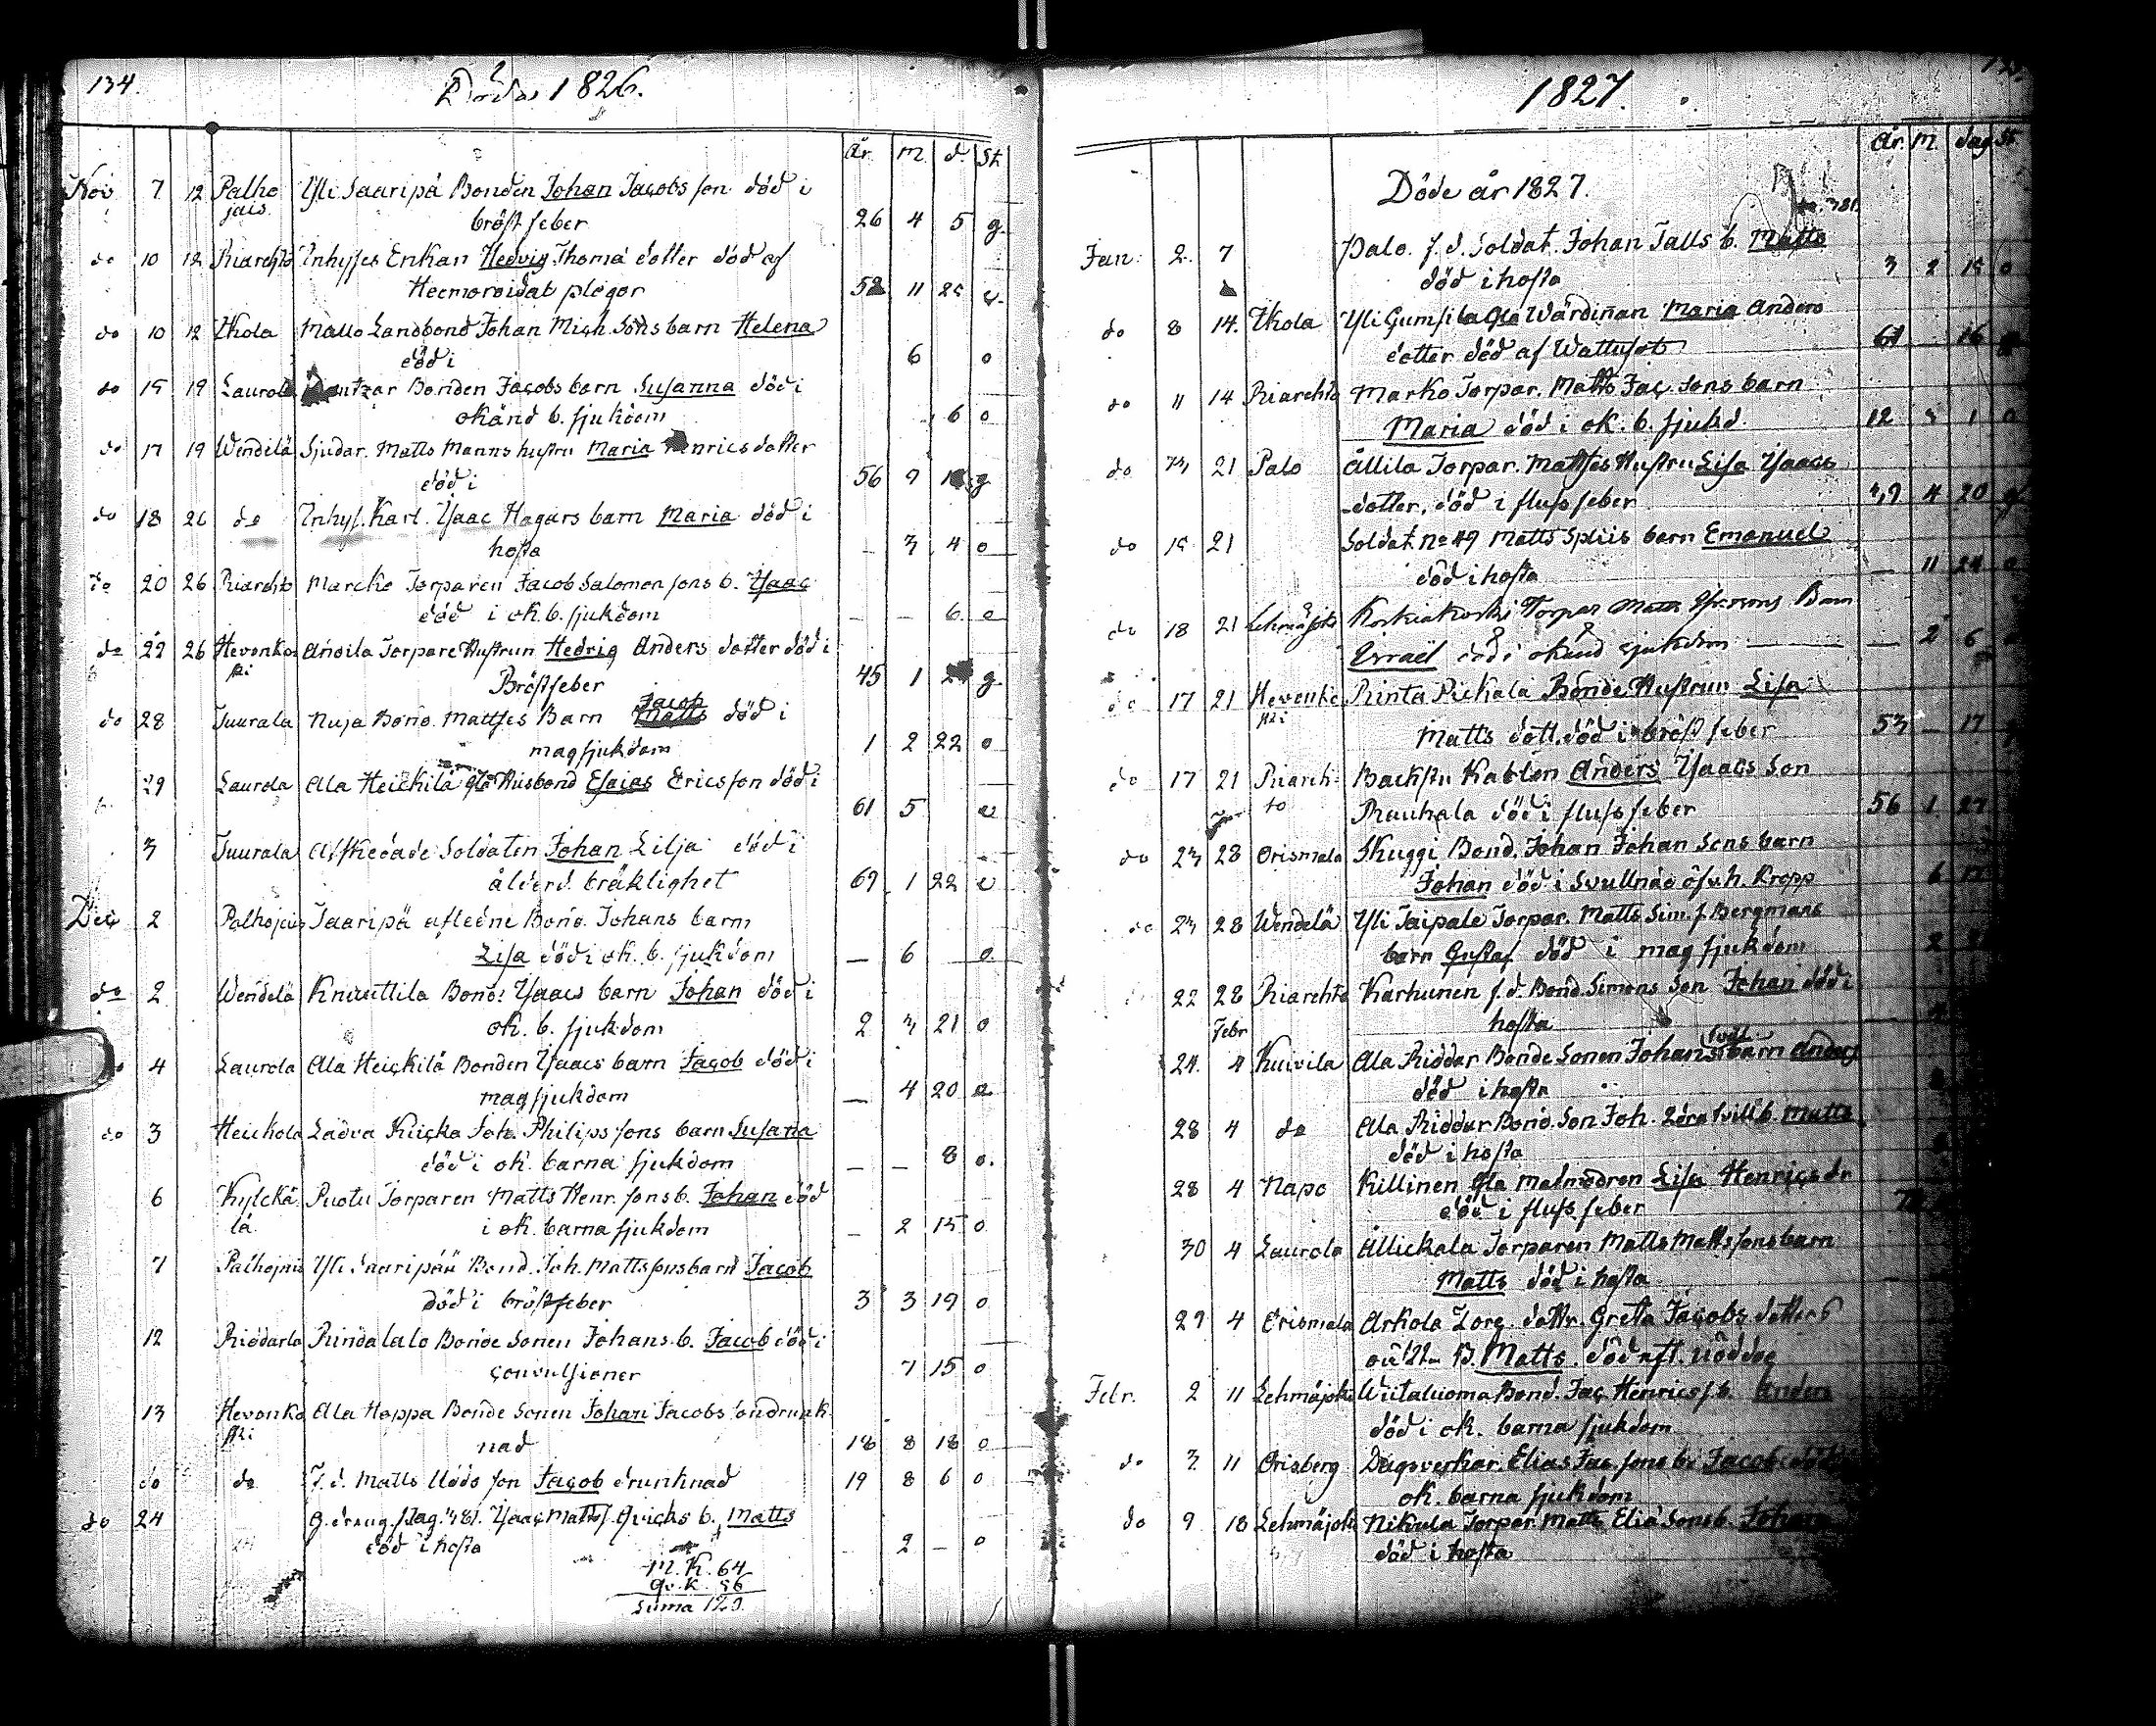 134.
Döda 1826.
År M d. St.
Nov 7 12 Palhojais Yli Saaripä Bonden Johan Jacobs son död i
bröst feber 26 4 5 g.
do 10 12 Riarehto Inhyses Enkan Hedvig Thomä dotter död af
Heemoroidal plågor 11 25
do 10 12 Ikola Mallo Landbond Johan Mich. Sons barn Helena
död i 6 o
do 15 19 Laurola Bonden Jacobs barn Susanna död i
okänd b. sjukdom 6 o
do 17 19 Wendelä Sjudar. Matts Manns hustru Maria Henrics dotter
död i 56 9 g
do 18 26 do Inhys. Karl. Ysaac Hagars barn Maria död i
hosta – 3 4 o
do 20 26 Riarehto Marcko Torparen Jacob Salomon sons b. Ysaac
död i ok. b. sjukdom – – 6 o
do 22 26 Hevonkoski Torpare Hustrun Hedvig Anders dotter död i
Bröstfeber 45 1 g
do 28 Tuurala Nuja Bond. Mattses Barn Jacob död i
magsjukdom 1 2 22 o
29 Laurola Ala Heickilä gla Husbond Esaias Ericsson död i
61 5
3 Tuurala Afskedade Soldaten Johan Lilja död i
ålderd. bräklighet 69 1 22
Dec 2 Palhojais Saaripä afledne Bond. Johans barn
Lisa död i ok. b. sjukdom – 6 o
do 2 Wendelä Knuuttila Bond. Ysaacs barn Johan död i
ok. b. sjukdom 2 21 o
4 Laurola Ala Heickilä Bonden Ysaacs barn Jacob död i
magsjukdom – 4 20 o
do 3 Heickola Ladva Kuicka Joh. Philips sons barn Susana
död i ok. barna sjukdom – – 8 o.
6 Kylckälä Puotu Torparen Matts Henr. sons b. Johan död
i ok. barna sjukdom – 2 15 o
7 Palhojais Yli Saaripää Bond. Joh. Mattssons barn Jacob
död i bröstfeber 3 3 19 o
12 Riddarla Rindalalo Bonde Sonen Johans b. Jacob död i
convulsioner 7 15 o
13 Hevonkoski Ala Hoppa Bonde Sonen Johan Jacobs son drunk
nad 18 8 18 o
do do F. d. Matts Uddds son Jacob drunknad 19 8 6 o
do 24 G. dräng Ysaac Matts s. Qvicks b. Matts
död i hosta – 2 – o
M. K. 64
Qv. K. 56
Suma 120.
1827.
År. M. dag St.
Döde år 1827.
Jan. 2. 7 Palo. f. d. Soldat. Johan Talls b. Matts
död i hosta 3 2 15 o
do 8 14. Ikola Yli Gumsila gla Wärdinnan Maria Anders
dotter död af Wattusot 61 16
do 11 14 Riarehto Marko Torpar. Matts Jac. sons barn
Maria död i ok. b. sjukd. 12 1 o
do 21 Palo Ållila Torpar. Mattses Hustru Lisa Ysaacs
dotter, död i flussfeber 4 20
do 15 21 Soldat. No 49 Matts Spliis barn Emanuel
död i hosta – 11 o
do 18 21 Lehmäjoki Koskiakoski Torpar Matts Barn
Israël död i okänd sjukdom – 2 6
do 17 21 Hevonkoski Rinta Pickala Bonde Hustrun Lisa
Matts dott. död i bröst feber 53 – 17
do 17 21 Riarehto Backstu Karlen Anders Ysaacs Son
Rauhala död i fluss feber 56 1 27
do 23 28 Orismala Skuggi Bond. Johan Johan Sons barn
Johan död i Svullnad öfv. h. Kropp 6
do 23 28 Wendelä Yli Taipale Torpar. Matts Sim. s. Bergmans
barn Gustaf död i magsjukdom 2
22 28 Riarehto Karhunen f. d. Bond. Simons Son Johan död i
hosta
Febr
24. 4 Kuivila Ala Riddar Bonde Sonen Johans barn Anders
död i hosta
28 4 do Ala Riddar Bond. Son Joh. b. Matts
död i hosta
28 4 Napo Killinen gla Malmodren Lisa Henricsdr
död i fluss feber
30 4 Laurola Ållickala Torparen Matts Mattssons barn
Matts död i hosta
29 4 Orismala Arkola Torp. dottr. Greta Jacobs dotters
B. Matts. död aft. nöddop
Febr. 2 11 Lehmäjoki Wiitaluoma Bond. Jac. Henrics s. b. Anders
död i ok. barna sjukdom
do 3 11 Orisberg Dagsverkar. Elias Jac. sons b. Jacob död
ok. barna sjukdom
do 9 18 Lehmäjoki Nikula Torpar. Matts Eliä Sons b. Johan
död i hosta